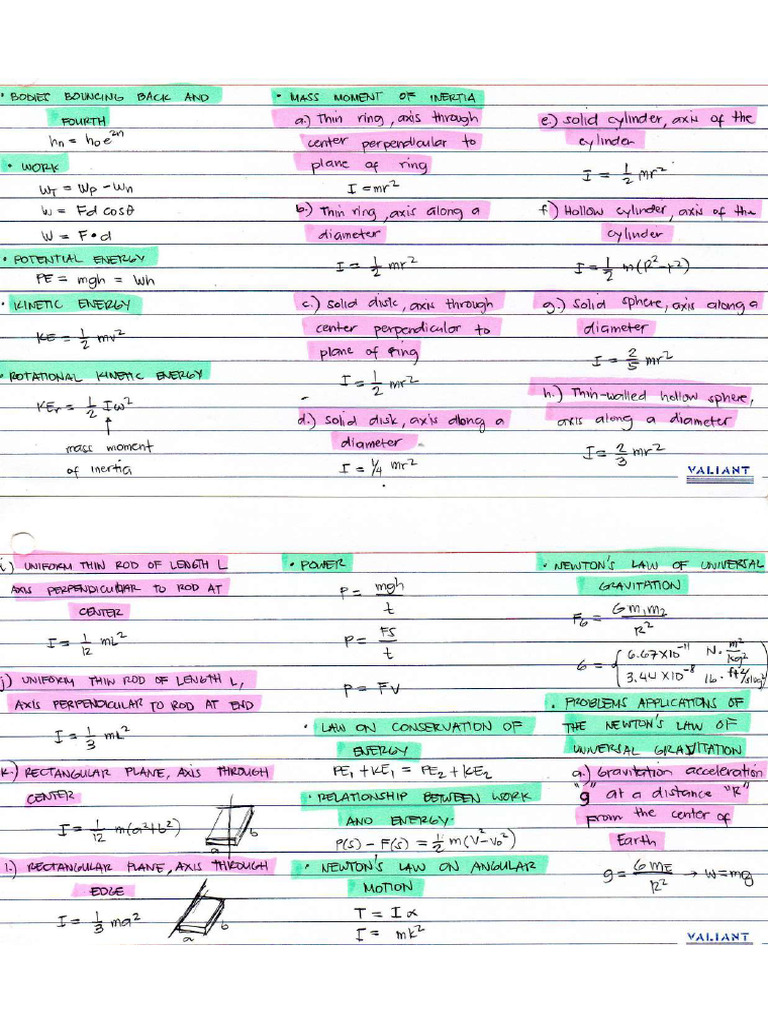 • BODIES BOUNCING BACK AND
FOURTH
hn = h0e^2n
• WORK
WT = Wp - Wn
W = Fd cosθ
W = F•d
• POTENTIAL ENERGY
PE = mgh = Wh
• KINETIC ENERGY
KE = 1/2 mv²
• ROTATIONAL KINETIC ENERGY
KEr = 1/2 Iω²
↑
mass moment
of inertia
• MASS MOMENT OF INERTIA
a.) Thin ring, axis through
center perpendicular to
plane of ring
I = mr²
b.) Thin ring, axis along a
diameter
I = 1/2 mr²
c.) solid disk, axis through
center perpendicular to
plane of ring
I = 1/2 mr²
d.) solid disk, axis along a
diameter
I = 1/4 mr²
e.) solid cylinder, axis of the
cylinder
I = 1/2 mr²
f.) Hollow cylinder, axis of the
cylinder
I = 1/2 m(R²-r²)
g.) solid sphere, axis along a
diameter
I = 2/5 mr²
h.) Thin-walled hollow sphere,
axis along a diameter
I = 2/3 mr²
VALIANT
i.) UNIFORM THIN ROD OF LENGTH L
AXIS PERPENDICULAR TO ROD AT
CENTER
I = 1/12 mL²
j) UNIFORM THIN ROD OF LENGTH L,
AXIS PERPENDICULAR TO ROD AT END
I = 1/3 mL²
k.) RECTANGULAR PLANE, AXIS THROUGH
CENTER
I = 1/12 m(a²+b²)
a b
l.) RECTANGULAR PLANE, AXIS THROUGH
EDGE
I = 1/3 ma²
a b
• POWER
P = mgh/t
P = FS/t
P = FV
• LAW ON CONSERVATION OF
ENERGY
PE1 + KE1 = PE2 + KE2
• RELATIONSHIP BETWEEN WORK
AND ENERGY.
P(s) - F(s) = 1/2 m(V²-V0²)
• NEWTON'S LAW ON ANGULAR
MOTION
T = I α
I = mk²
• NEWTON'S LAW OF UNIVERSAL
GRAVITATION
FG = Gm1m2/R²
G = { 6.67x10^-11 N·m²/kg²
3.44x10^-8 lb·ft²/slug²
• PROBLEMS APPLICATIONS OF
THE NEWTON'S LAW OF
UNIVERSAL GRAVITATION
a.) Gravitation acceleration
"g" at a distance "R"
from the center of
Earth
g = GmE/R² → W=mg
VALIANT